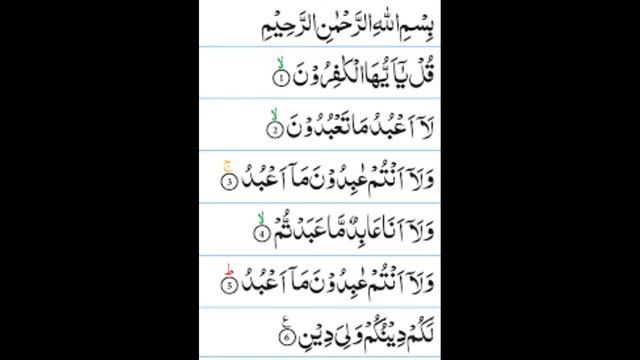 بِسْمِ اللّٰهِ الرَّحْمٰنِ الرَّحِيْمِ
قُلْ يٰٓاَيُّهَا الْكٰفِرُوْنَ ۙ ①
لَآ اَعْبُدُ مَا تَعْبُدُوْنَ ۙ ②
وَلَآ اَنْتُمْ عٰبِدُوْنَ مَآ اَعْبُدُ ۚ ③
وَلَآ اَنَا عَابِدٌ مَّا عَبَدْتُّمْ ۙ ④
وَلَآ اَنْتُمْ عٰبِدُوْنَ مَآ اَعْبُدُ ؕ ⑤
لَكُمْ دِيْنُكُمْ وَلِيَ دِيْنِ ع ⑥